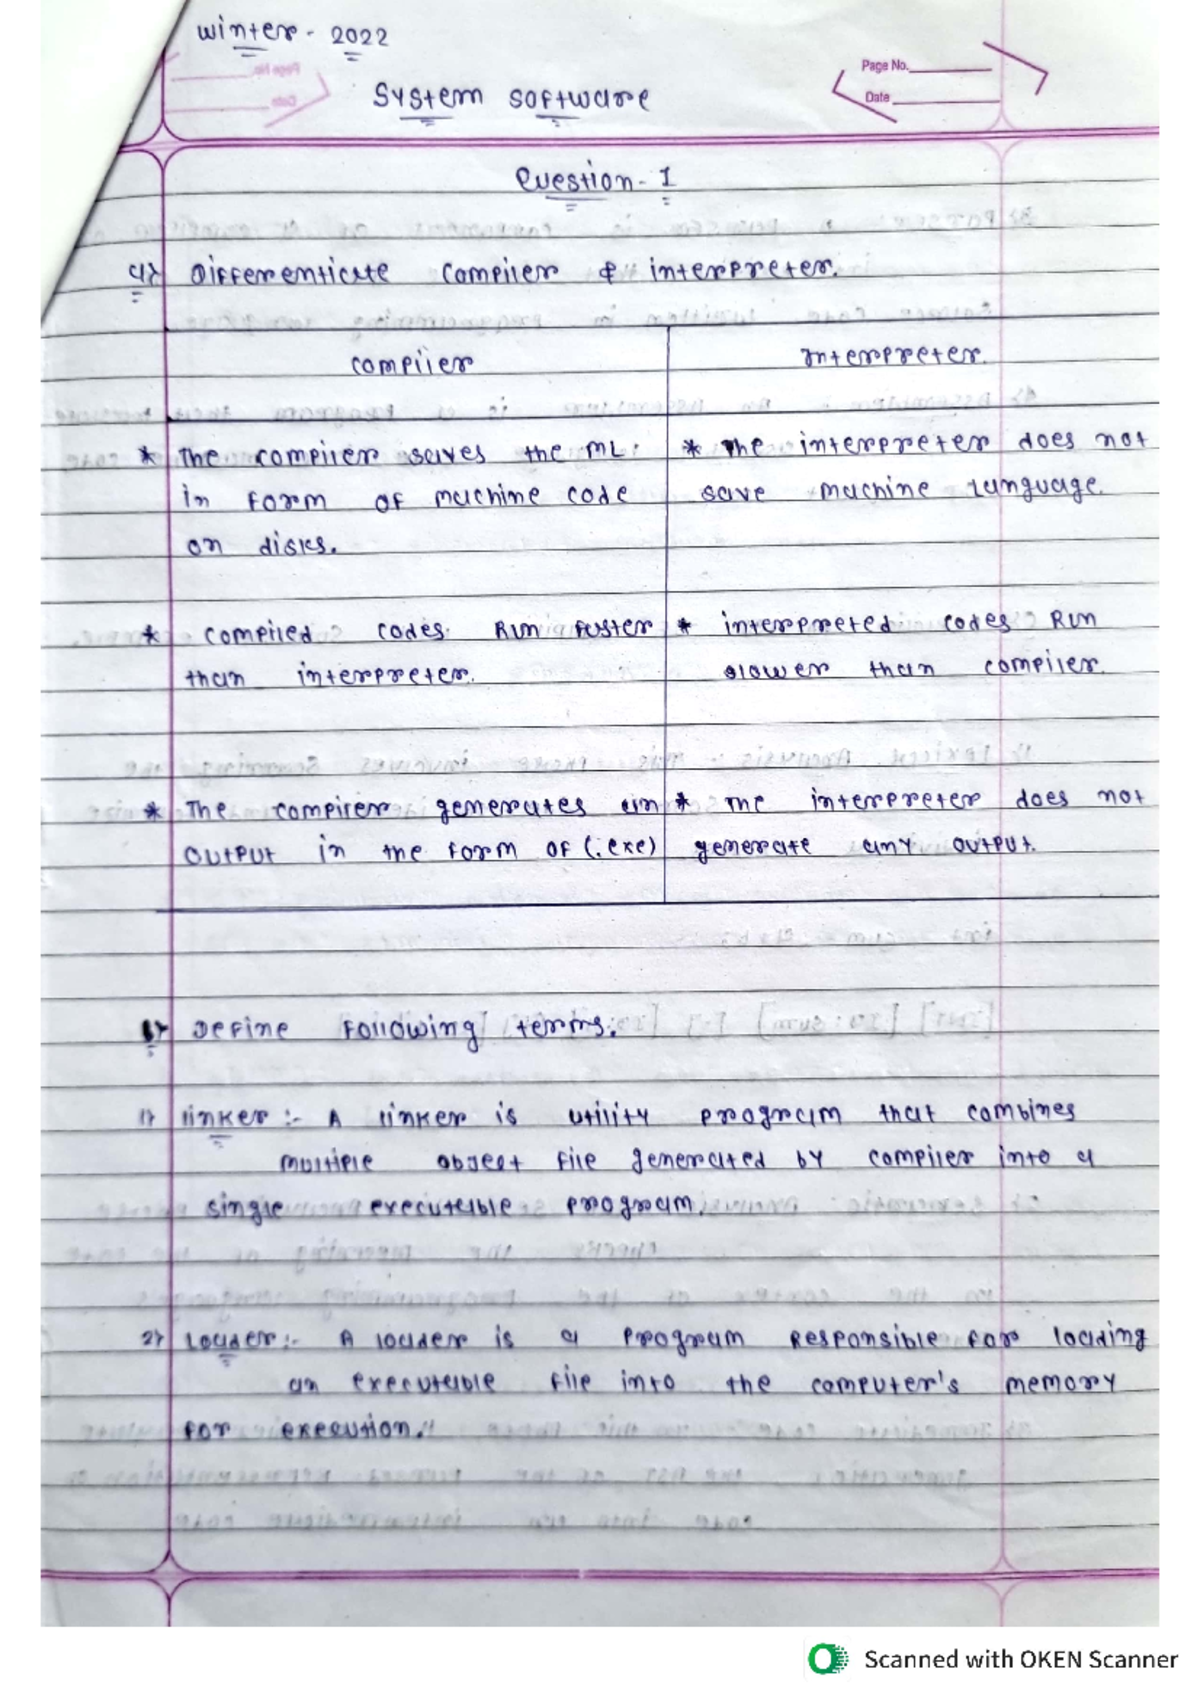 Winter - 2022
System Software
Page No.
Date
Question - 1
a) Differenticate compiler & interpreter.
compiler
Interpreter.
* The compiler saves the ML.
in form of machine code
on disks.
* The interpreter does not
save machine language.
* compiled codes Run faster
than interpreter.
* interpreted codes Run
slower than compiler.
* The compiler generates an
output in the form of (.exe)
* The interpreter does not
generate any output.
b) Define following terms.
1) linker :- A linker is utility program that combines
multiple object file generated by compiler into a
single executable program.
2) Loader :- A loader is a program Responsible for loading
an executable file into the computer's memory
for execution.
Scanned with OKEN Scanner